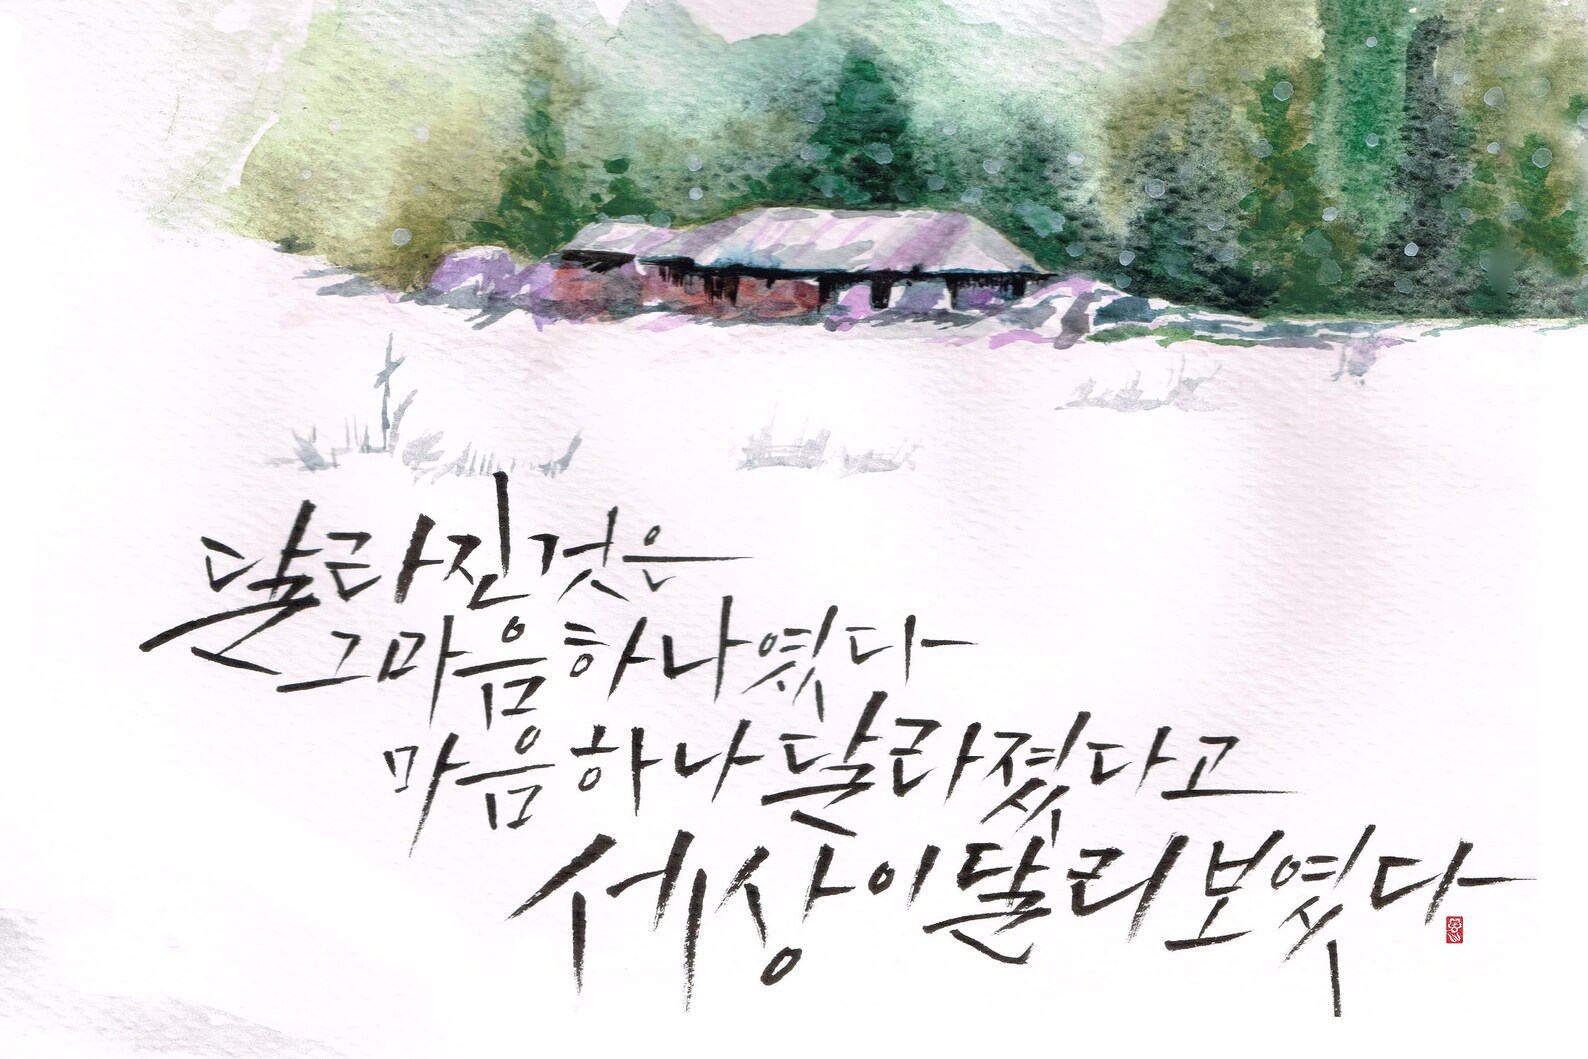 달라진것은
그마음하나였다
마음하나달라졌다고
세상이달리보였다